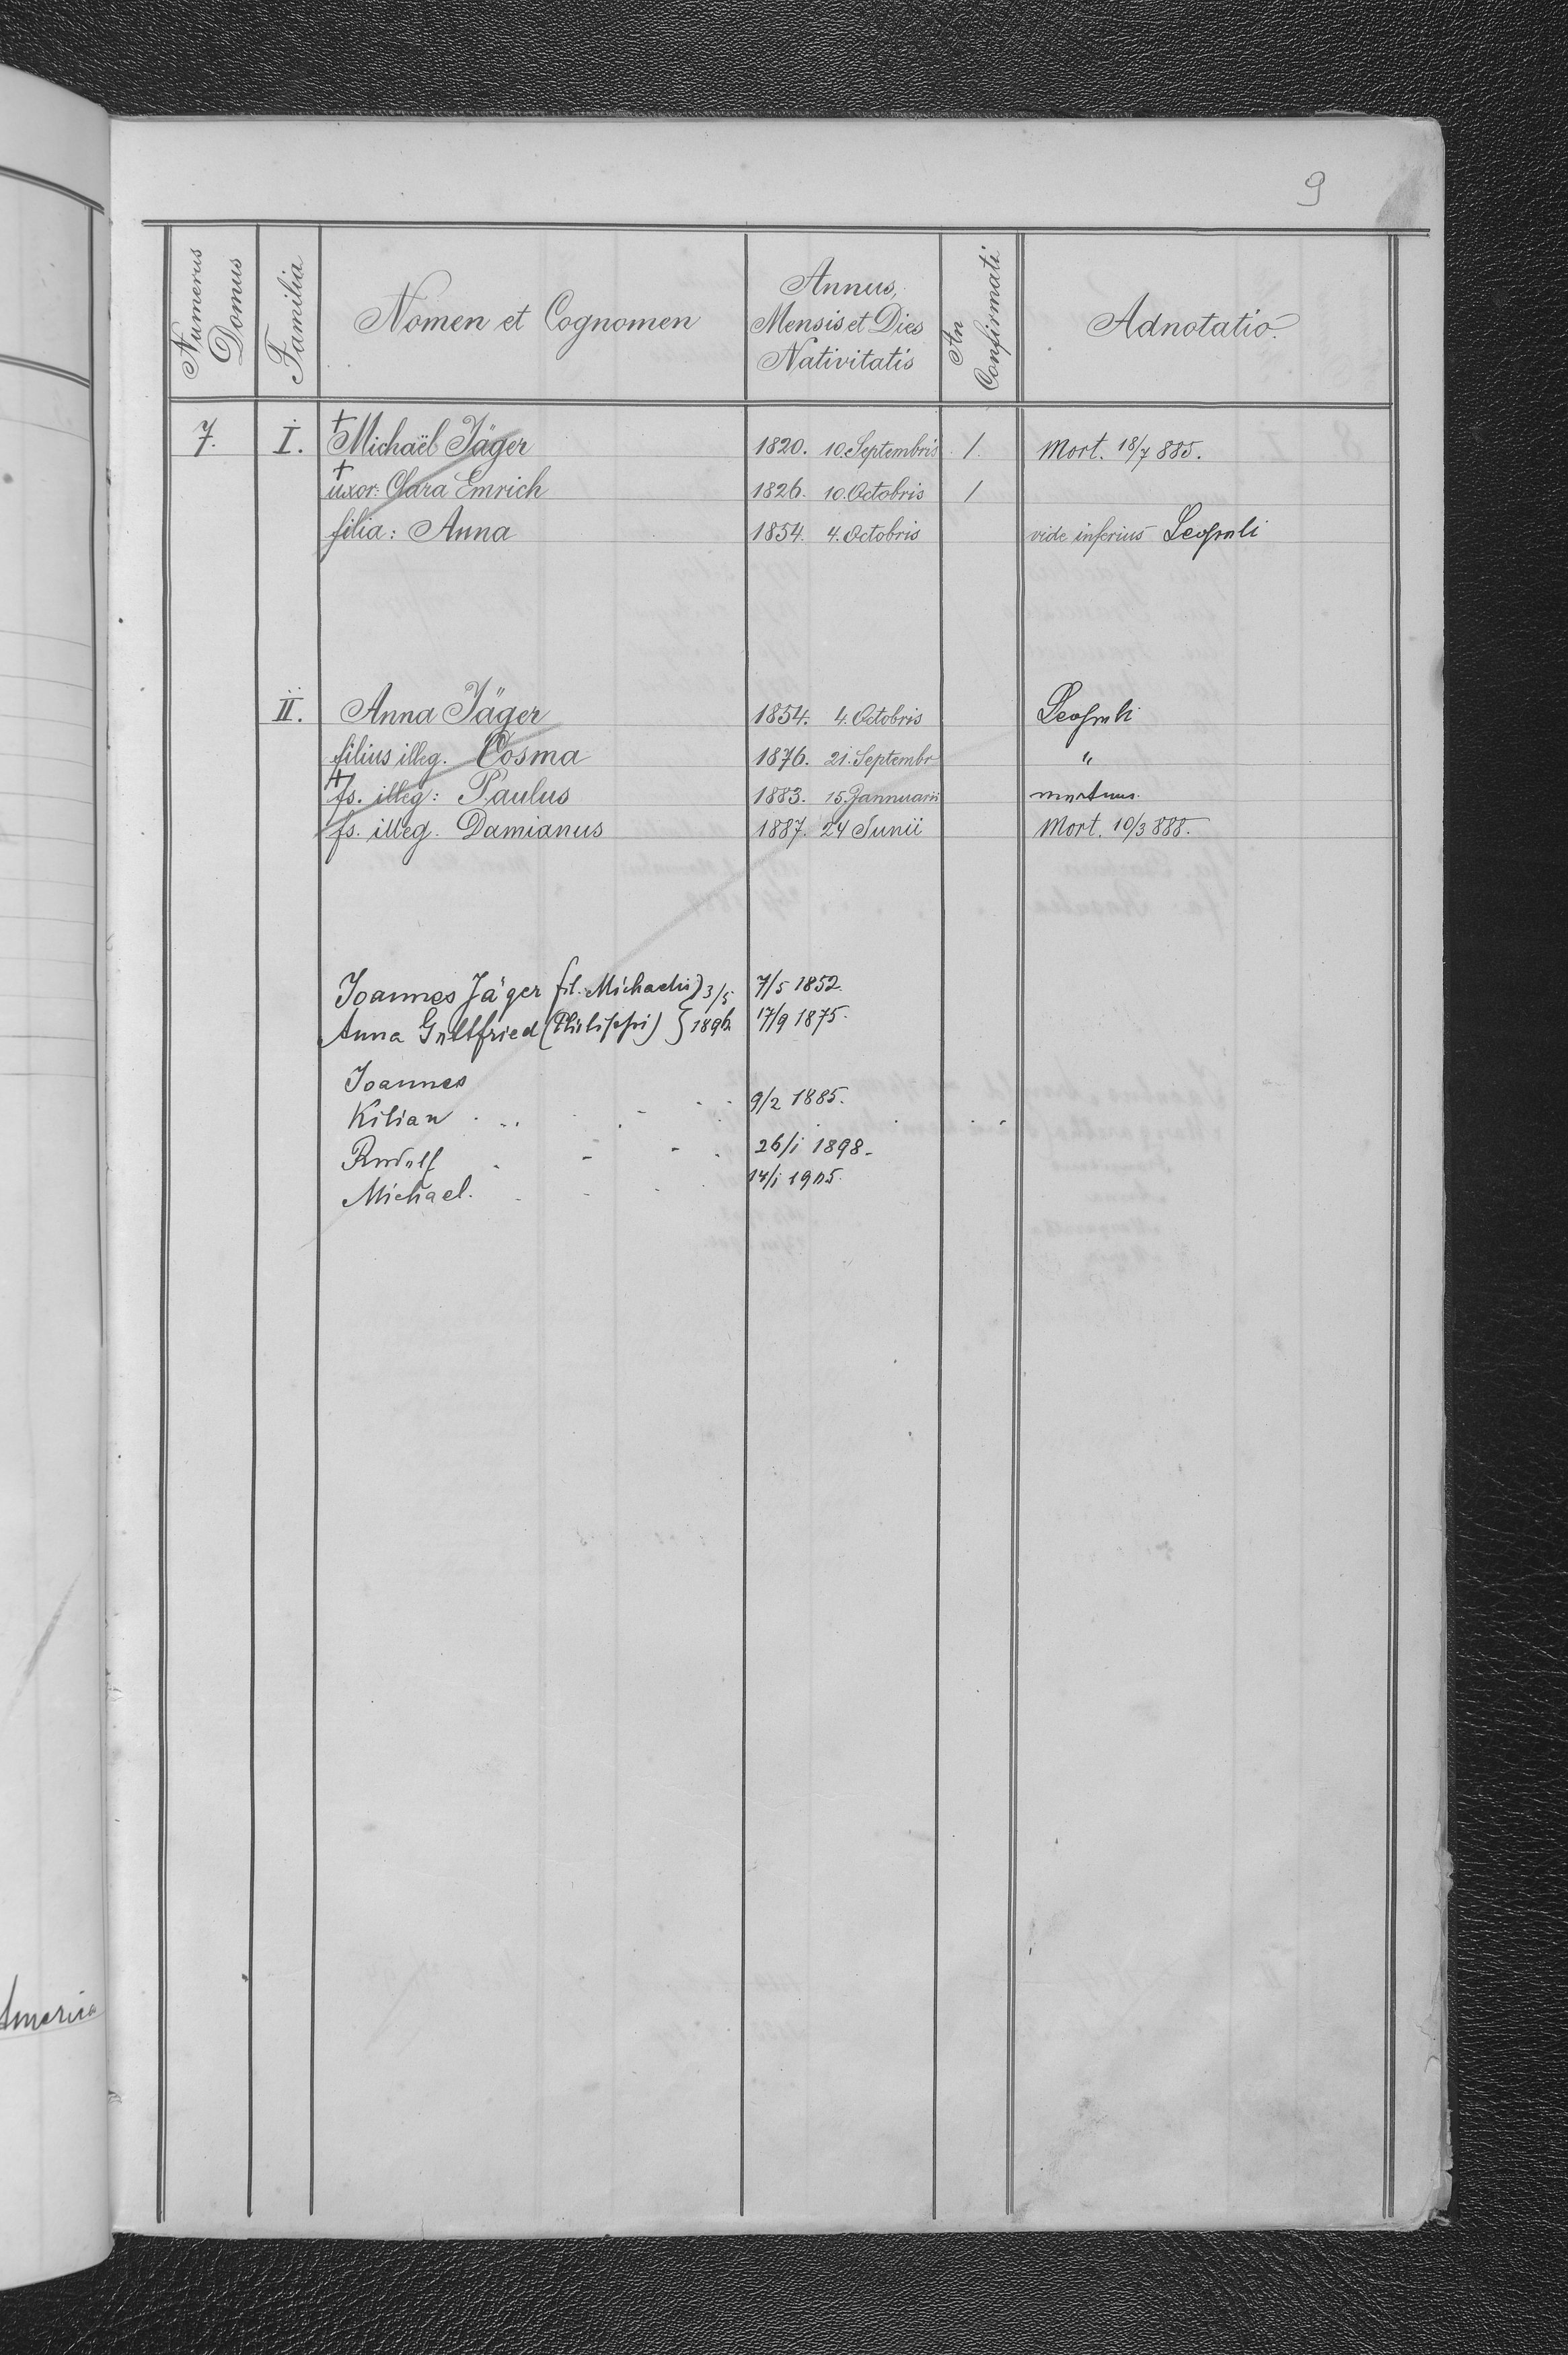 9
Numerus Domus
Familia
Nomen et Cognomen
Annus,
Mensis et Dies
Nativitatis
An Confirmati
Adnotatio
7. I. † Michaël Jäger 1820. 10. Septembris 1. Mort. 18/7 885.
† uxor: Clara Emrich 1826. 10. Octobris 1
filia: Anna 1854. 4. Octobris vide inferius Leopoli
II. Anna Jäger 1854. 4. Octobris Leopoli
filius illeg. Cosma 1876. 21. Septembr "
† fs. illeg: Paulus 1883. 15. Jannuarii mortuus.
fs. illeg. Damianus 1887. 24 Junii Mort. 10/3 888.
Joannes Jäger (fil. Michaelis) } 3/5 7/5 1852.
Anna Gottfried (Philippi) } 1896 17/9 1875.
Joannes
Kilian 9/2 1885.
Rudolf 26/1 1898.
Michael. 14/1 1905.
America